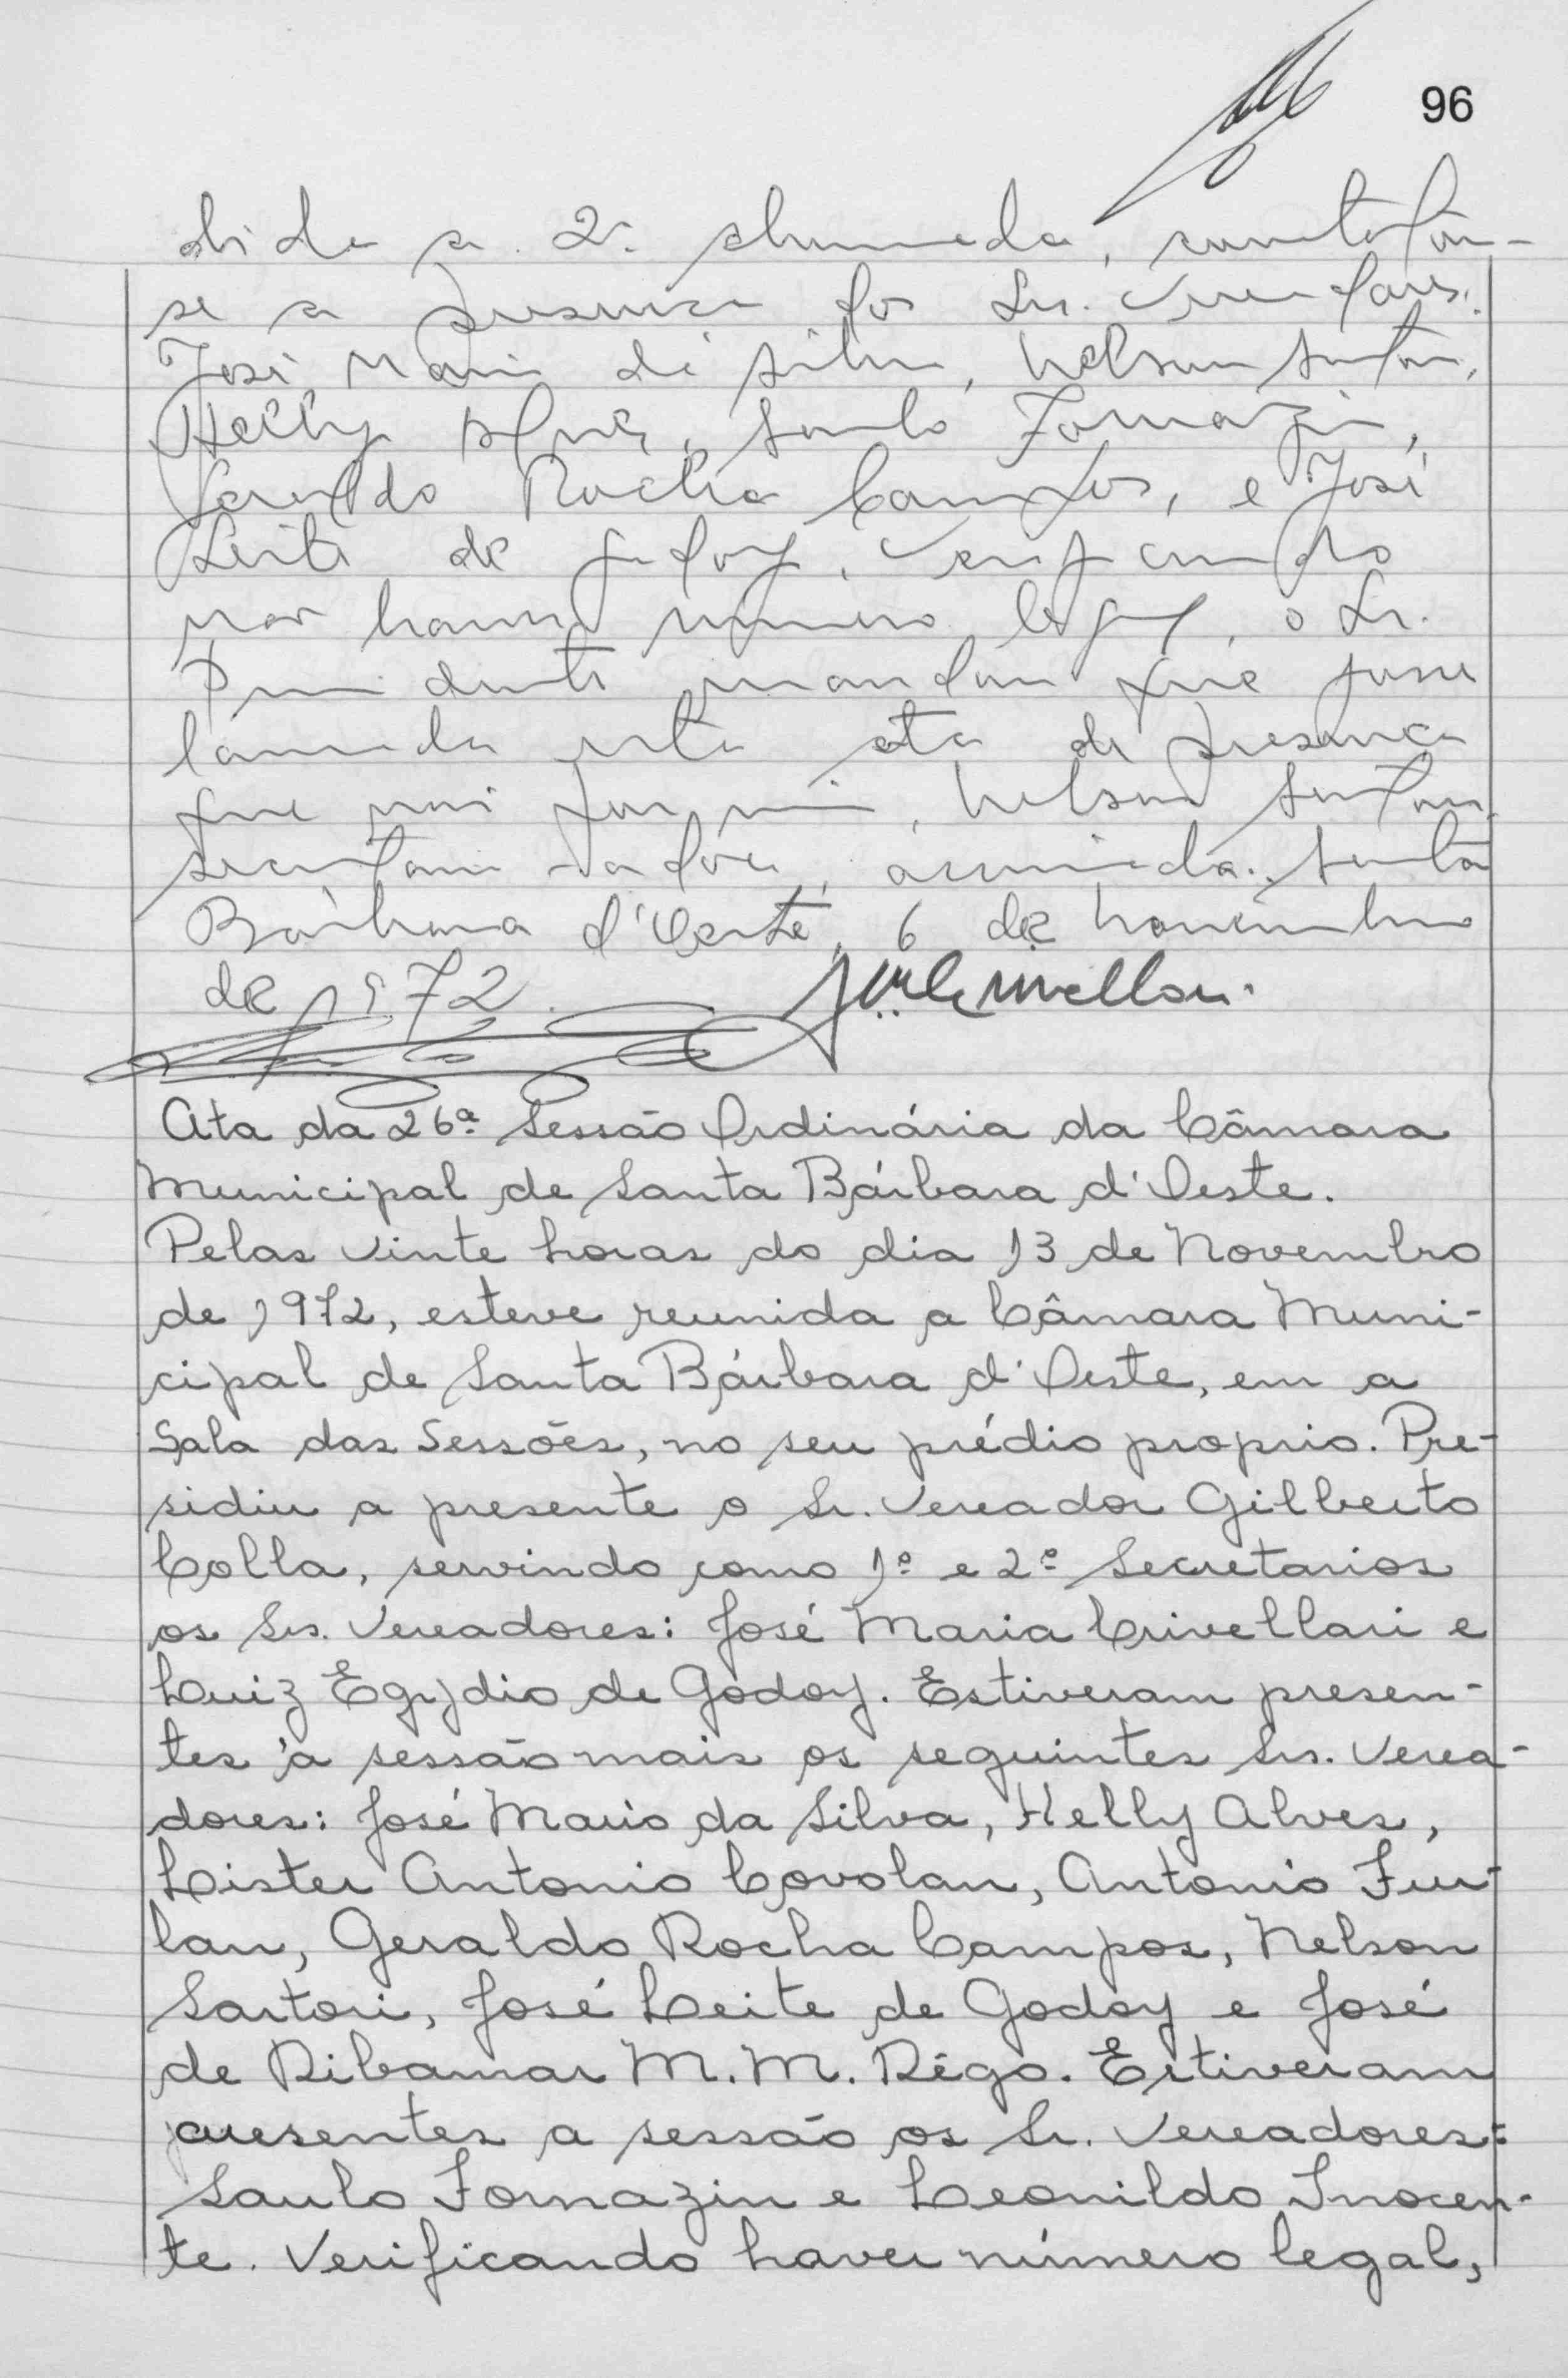 96
dida a 2ª chamada, constatou-
se a presença dos Srs. Vereadores:
José Maria da Silva, Nelson Sartori,
Helly Alves, Saulo Fornazin,
Geraldo Rocha Campos, e José
Leite de Godoy. Verificando
não haver número legal, o Sr.
Presidente mandou que fosse
lavrada esta ata de presença
que vai por mim, Nelson Sartori,
secretario, assinada. Santa
Bárbara d'Oeste, 6 de novembro
de 1972.
Ata da 26ª Sessão Ordinária da Câmara
Municipal de Santa Bárbara d'Oeste.
Pelas vinte horas do dia 13 de Novembro
de 1972, esteve reunida a Câmara Muni-
cipal de Santa Bárbara d'Oeste, em a
Sala das Sessões, no seu prédio proprio. Pre-
sidiu a presente o Sr. Vereador Gilberto
Colla, servindo como 1º e 2º Secretarios
os Srs. Vereadores: José Maria Crivellari e
Luiz Egydio de Godoy. Estiveram presen-
tes à sessão mais os seguintes Srs. Verea-
dores: José Mario da Silva, Helly Alves,
Lister Antonio Covolan, Antonio Fur-
lan, Geraldo Rocha Campos, Nelson
Sartori, José Leite de Godoy e José
de Ribamar M. M. Rêgo. Estiveram
ausentes a sessão os Sr. Vereadores:
Saulo Fornazin e Leonildo Inocen-
te. Verificando haver número legal,